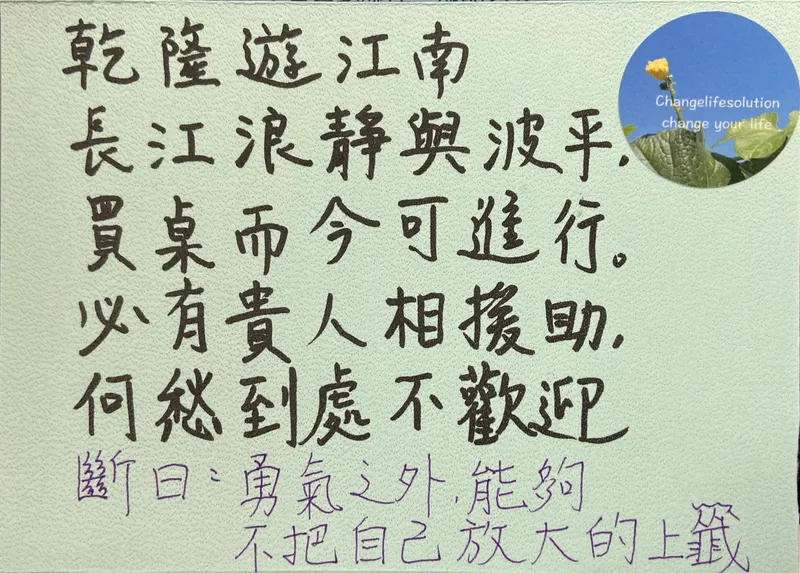 乾隆遊江南
長江浪靜與波平，
買桌而今可進行。
必有貴人相援助，
何愁到處不歡迎
斷曰：勇氣之外，能夠
不把自己放大的上籤
Changelifesolution
change your life